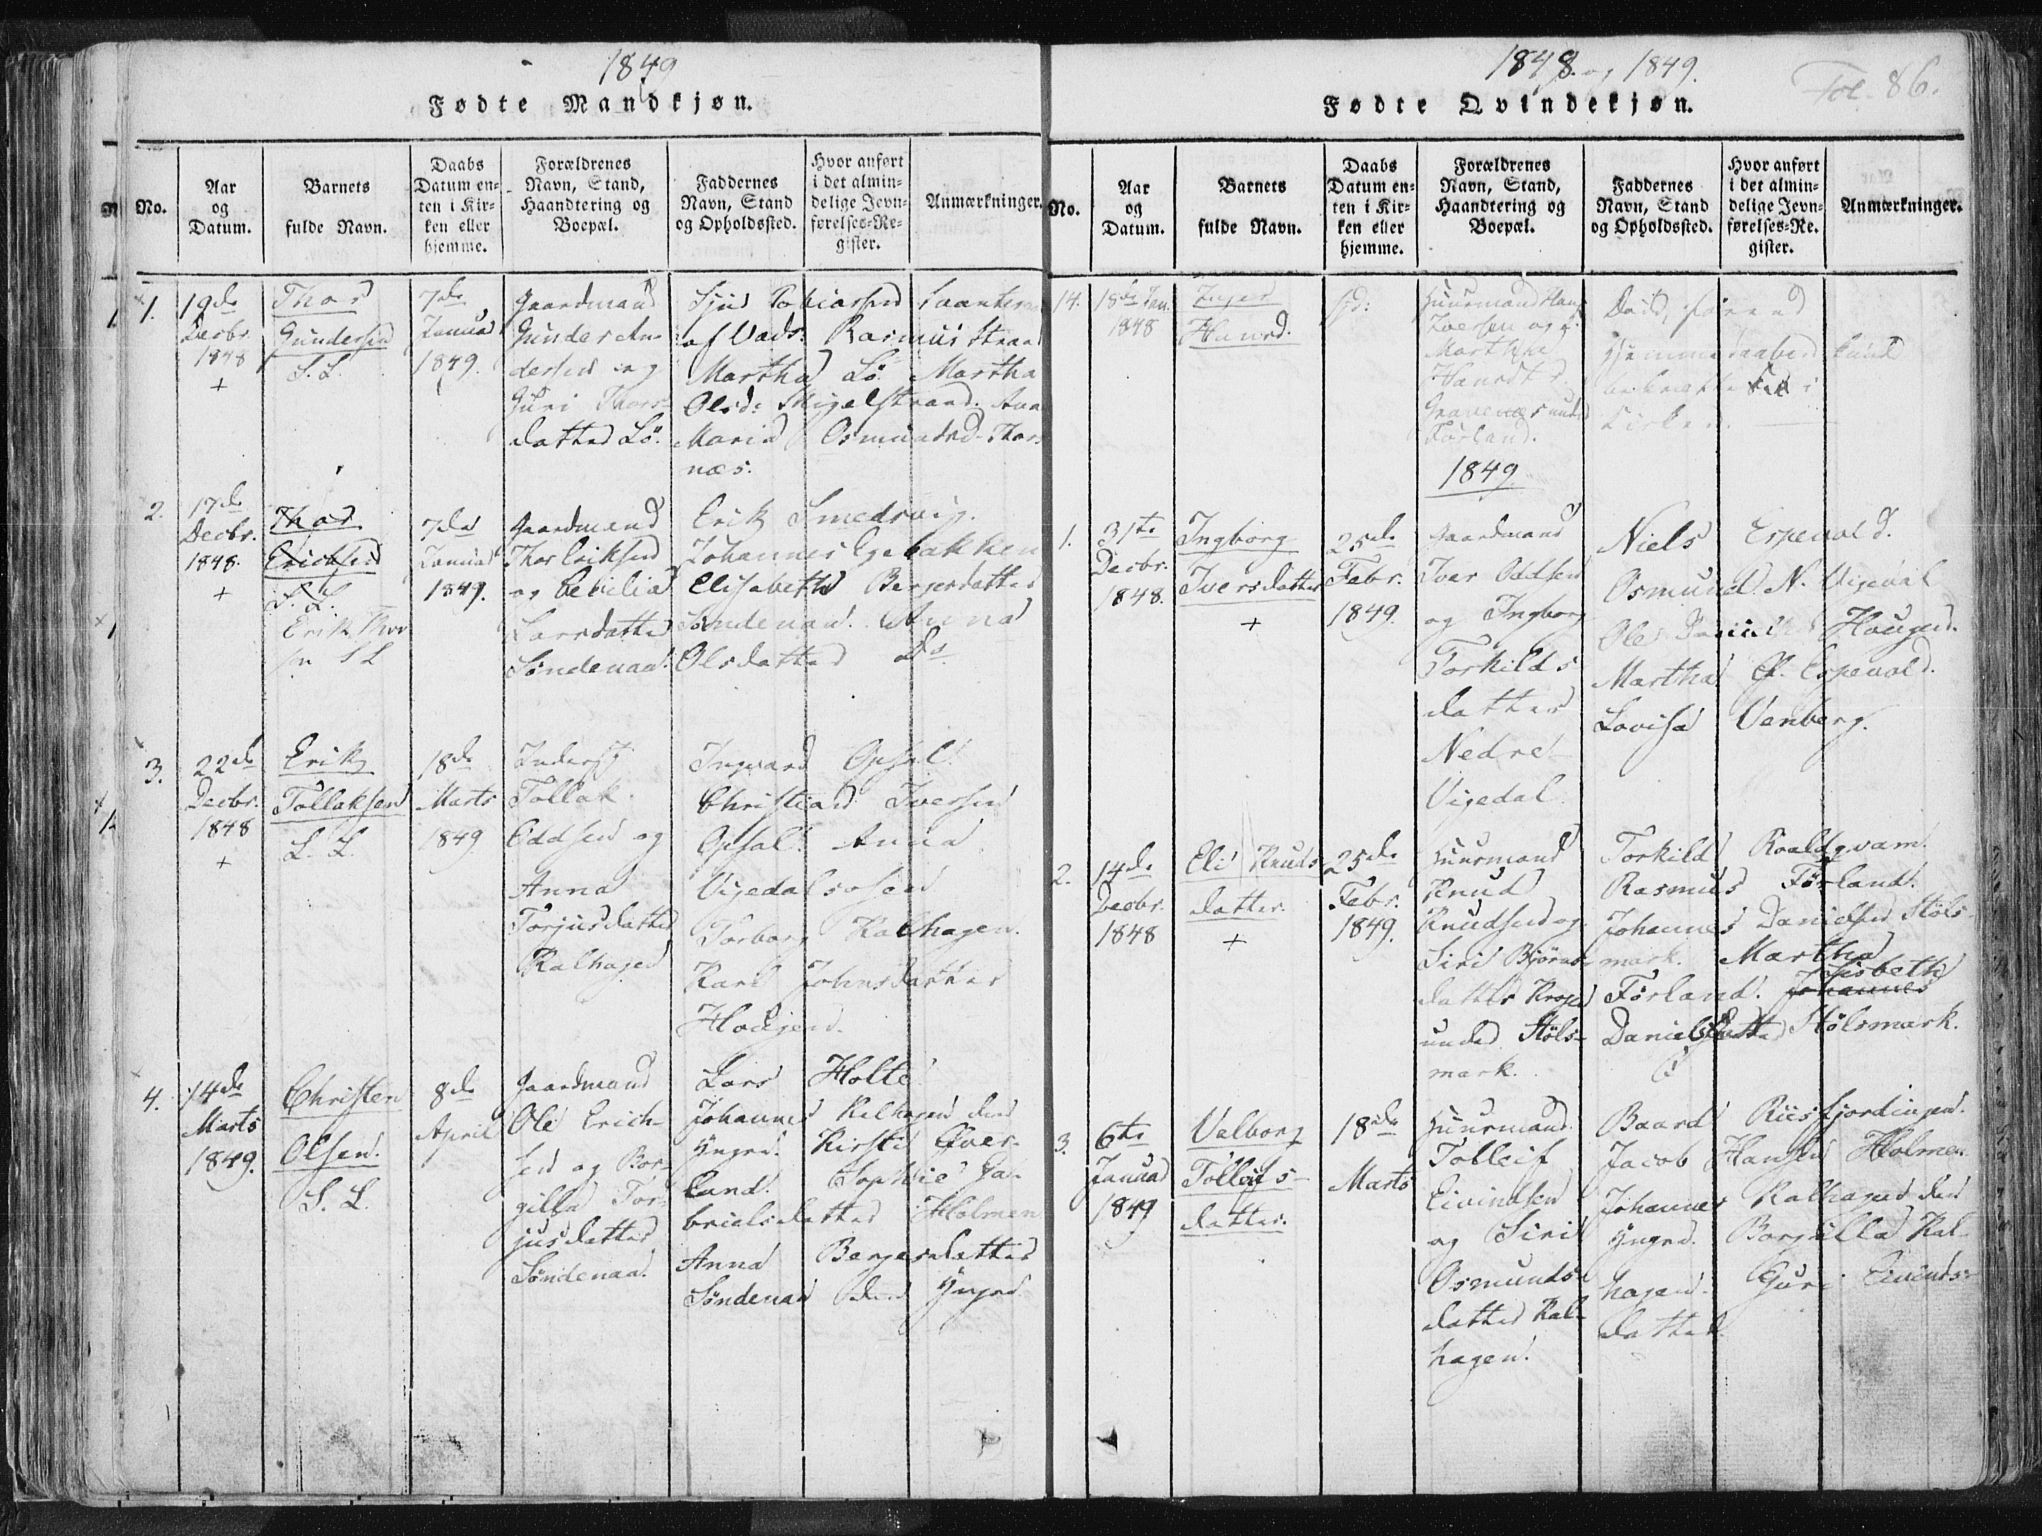 1849
Fødte Mandkjøn.
No.
Aar
og
Datum.
Barnets
fulde Navn.
Daabs
Datum en-
ten i Kir-
ken eller
hjemme.
Forældrenes
Navn, Stand,
Haandtering og
Boepæl.
Faddernes
Navn, Stand
og Opholdssted.
Hvor anført
i det almin-
delige Jevn-
førelses-Re-
gister.
Anmærkninger.
1.
19de
Decbr.
1848
+
Thor
Gundersen
S. L.
7de
Januar
1849.
Gaardmand
Gunder An-
dersen og
Guri Thors-
datter Lö.
Sjur Tobiassen
af Vads. Rasmus Strand
Martha Lö. Martha
Olsd: Migelstrand. Ana
Maria Osmundsd. Thors-
næs.
2.
17de
Decbr.
1848.
+
Thor
Erichsen
S. L.
Erik Thor
sen S L
7de
Januar
1849.
Gaardmand
Thor Eriksen
og Cecilia
Larsdatter
Søndenaa.
Erik Smedsvig.
Johannes Egebakken
Elisabeth Bergesdatter
Søndenaa. Anna
Olsdatter Ds
3.
22de
Decbr.
1848
+
Erik
Tollaksen
S. L.
18de
Marts
1849
Inderst
Tollak
Oddsen og
Anna
Torjusdatter
Kalhagen
Ingvard Opsal.
Christian Iversen
Opsal. Anna
Vigedalsosen
Torborg Kalhagen.
Kari Johnsdatter
Hougen.
4.
14de
Marts
1849.
Christen
Olsen.
S. L.
8de
April
Gaardmand
Ole Erich-
sen og Bor-
gilla Tor-
jusdatter
Søndenaa.
Lars Holte.
Johannes Kalhagen den
Yngre. Kirsti Øver-
land. Sophie Ga-
brielsdatter Holmen
Anna Bergesdatter
Søndenaa den Yngre
1848. og 1849.
Fol. 86.
Fødte Qvindekjøn.
No.
Aar
og
Datum.
Barnets
fulde Navn.
Daabs
Datum en-
ten i Kir-
ken eller
hjemme.
Forældrenes
Navn, Stand,
Haandtering og
Boepæl.
Faddernes
Navn, Stand
og Opholdssted.
Hvor anført
i det almin-
delige Jevn-
førelses-Re-
gister.
Anmærkninger.
14.
18de Jan.
1848
Inger
Hansd.
Huusmand Hans
Iversen og
Martha
Hansdtr.
under
Førland.
Død, førend
hjemmedaaben kunde
bekræftes i
Kirken.
1849
1.
31te
Decbr.
1848.
Ingborg
Iversdatter
+
25de
Febr.
1849.
Gaardmand
Iver Oddsen
og Ingborg
Torkilds
datter
Nedre
Vigedal.
Niels Espevold.
Osmund N. Vigedal
Ole Hougen.
Martha E. Espevold.
Lovisa Vanberg.
2.
14de
Decbr.
1848
Eli Knuds-
datter.
+
25de
Febr.
1849.
Huusmand
Knud
Knudsen og
Siri Bjørns-
datter
under Støls-
mark.
Torkild Roaldqvam.
Rasmus Førland.
Johannes Danielsen Støls-
mark. Martha
Førland. Johannes Lisbeth
Danielsdatter Stølsmark.
3.
6te
Januar
1849
Valborg
Tolleifs-
datter.
18de
Marts
Huusmand
Tolleif
Eivindsen
og Siri
Osmunds-
datter Kal-
hagen.
Baard Riisfjordingen.
Jacob Hansen Holmen
Johannes Kalhagen den
Yngre. Borgilla Kal-
hagen. Guri Eivinds-
datter.